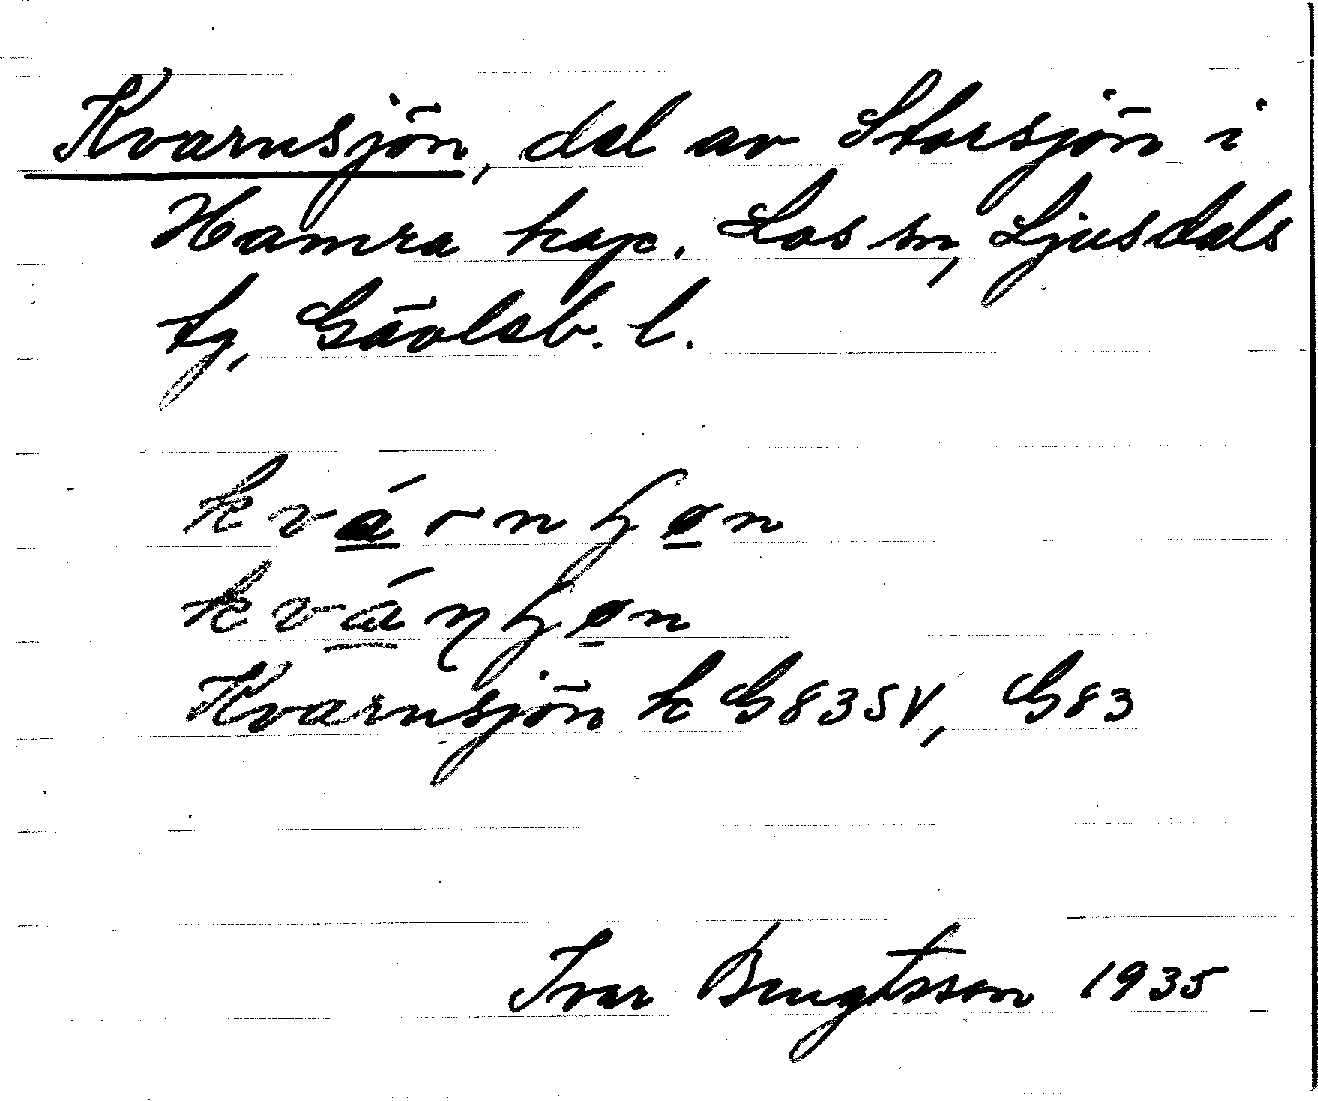 Kvarnsjön, del av Storsjön i
Hamra kap. Los sn, Ljusdals
tg, Gävleb. l.
kvá̲rnʃø̲n
kvá̲ɳʃø̲n
Kvarnsjön k G83SV, G83
Ivar Bengtsson 1935